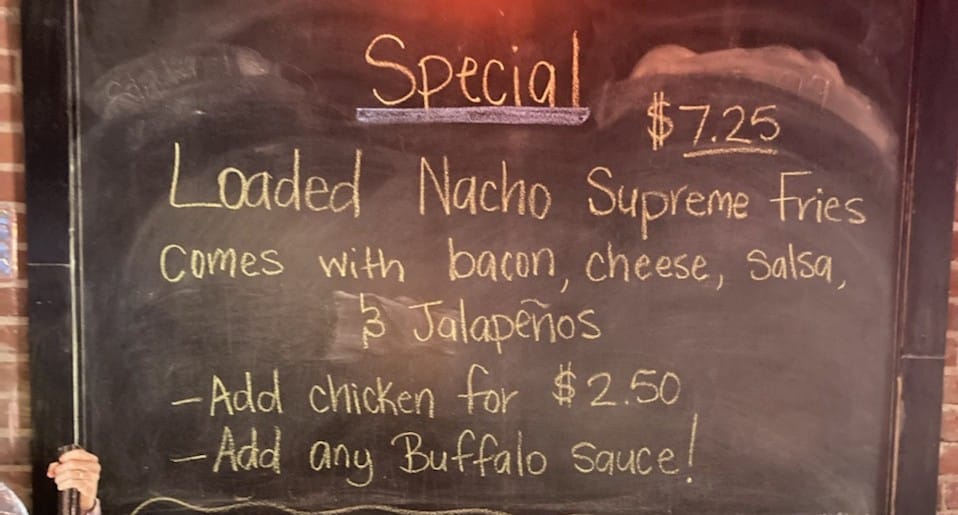 Special
$7.25
Loaded Nacho Supreme Fries
comes with bacon, cheese, salsa,
& Jalapeños
- Add chicken for $2.50
- Add any Buffalo sauce!